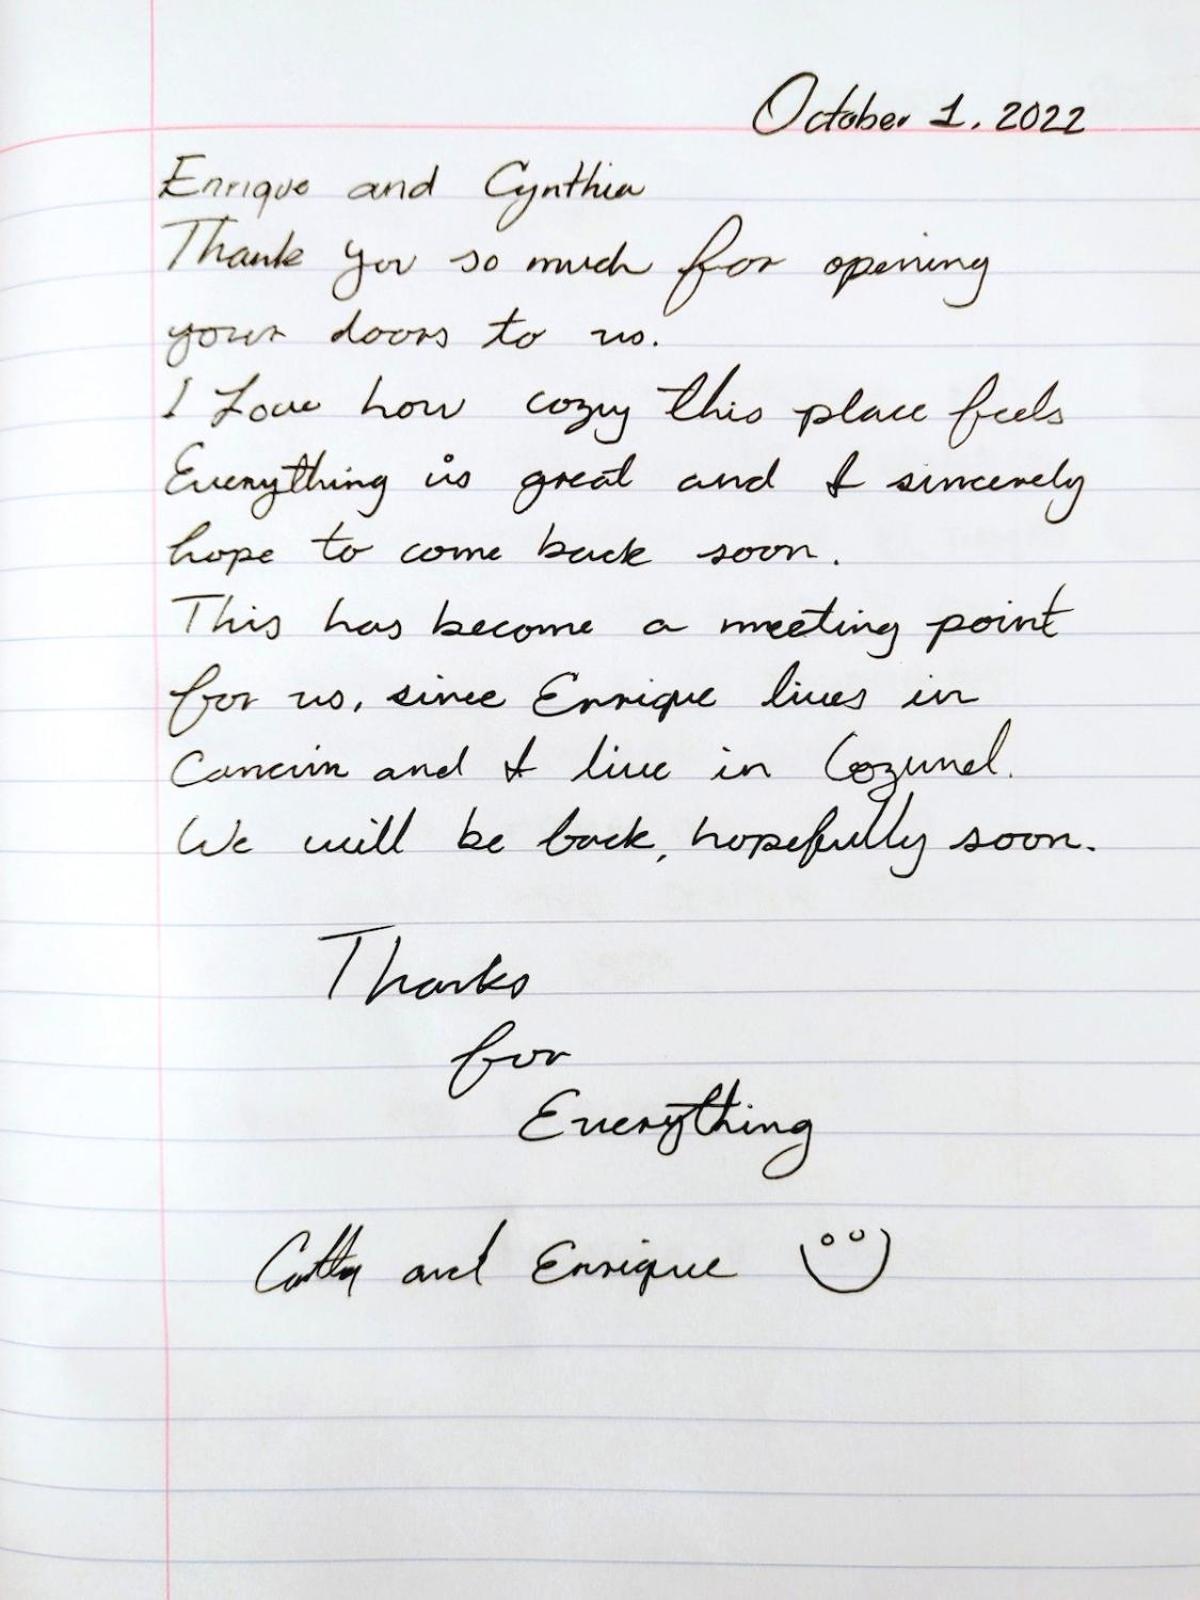 October 1, 2022
Enrique and Cynthia
Thank you so much for opening
your doors to us.
I Love how cozy this place feels
Everything is great and I sincerely
hope to come back soon.
This has become a meeting point
for us, since Enrique lives in
Cancún and I live in Cozumel.
We will be back, hopefully soon.
Thanks
for
Everything
and Enrique